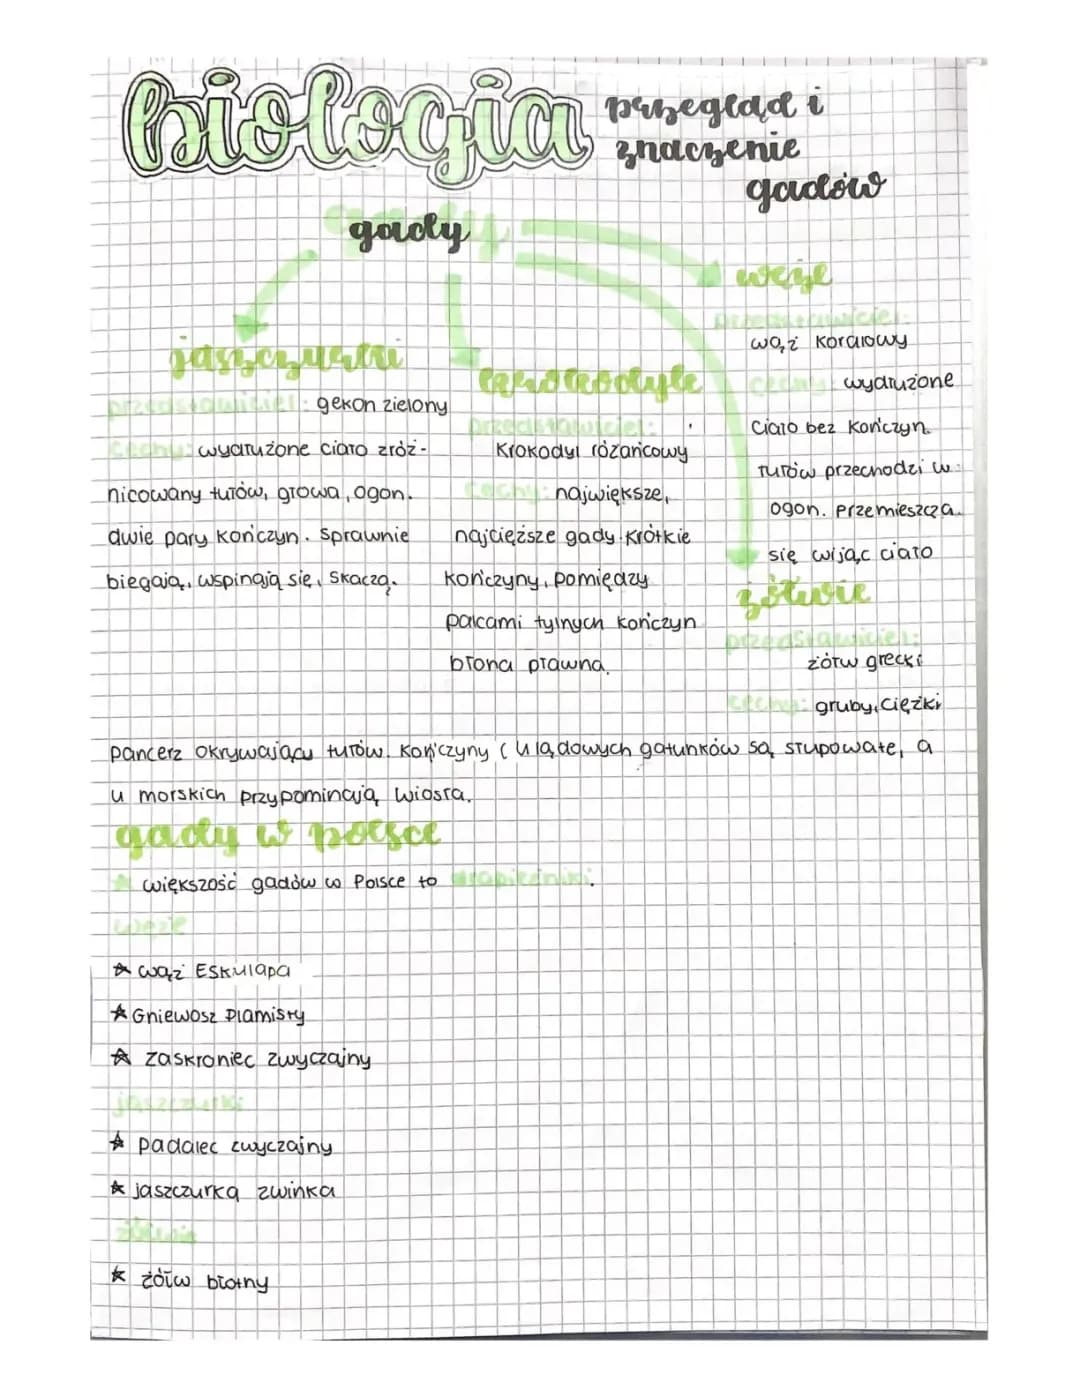 biologia
przegląd i
znaczenie
gadów
gady
jaszczurki
przedstawiciel: gekon zielony
cechy: wydłużone ciało zróż-
nicowany tułów, głowa, ogon.
dwie pary kończyn. Sprawnie
biegają, wspinają się, skaczą.
krokodyle
przedstawiciel:
krokodyl różańcowy
cechy: największe,
najcięższe gady. Krótkie
kończyny, pomiędzy
palcami tylnych kończyn
błona pławna.
węże
przedstawiciel:
wąż koralowy
cechy: wydłużone
ciało bez kończyn.
tułów przechodzi w
ogon. Przemieszcza
się wijąc ciało
żółwie
przedstawiciel:
żółw grecki
cechy: gruby, ciężki
pancerz okrywający tułów. Kończyny ( u lądowych gatunków są słupowate, a
u morskich przypominają wiosła.
gady w polsce
większość gadów w Polsce to drapieżniki.
węże
wąż Eskulapa
Gniewosz Plamisty
zaskroniec zwyczajny
jaszczurki
padalec zwyczajny
jaszczurka zwinka
żółwie
żółw błotny